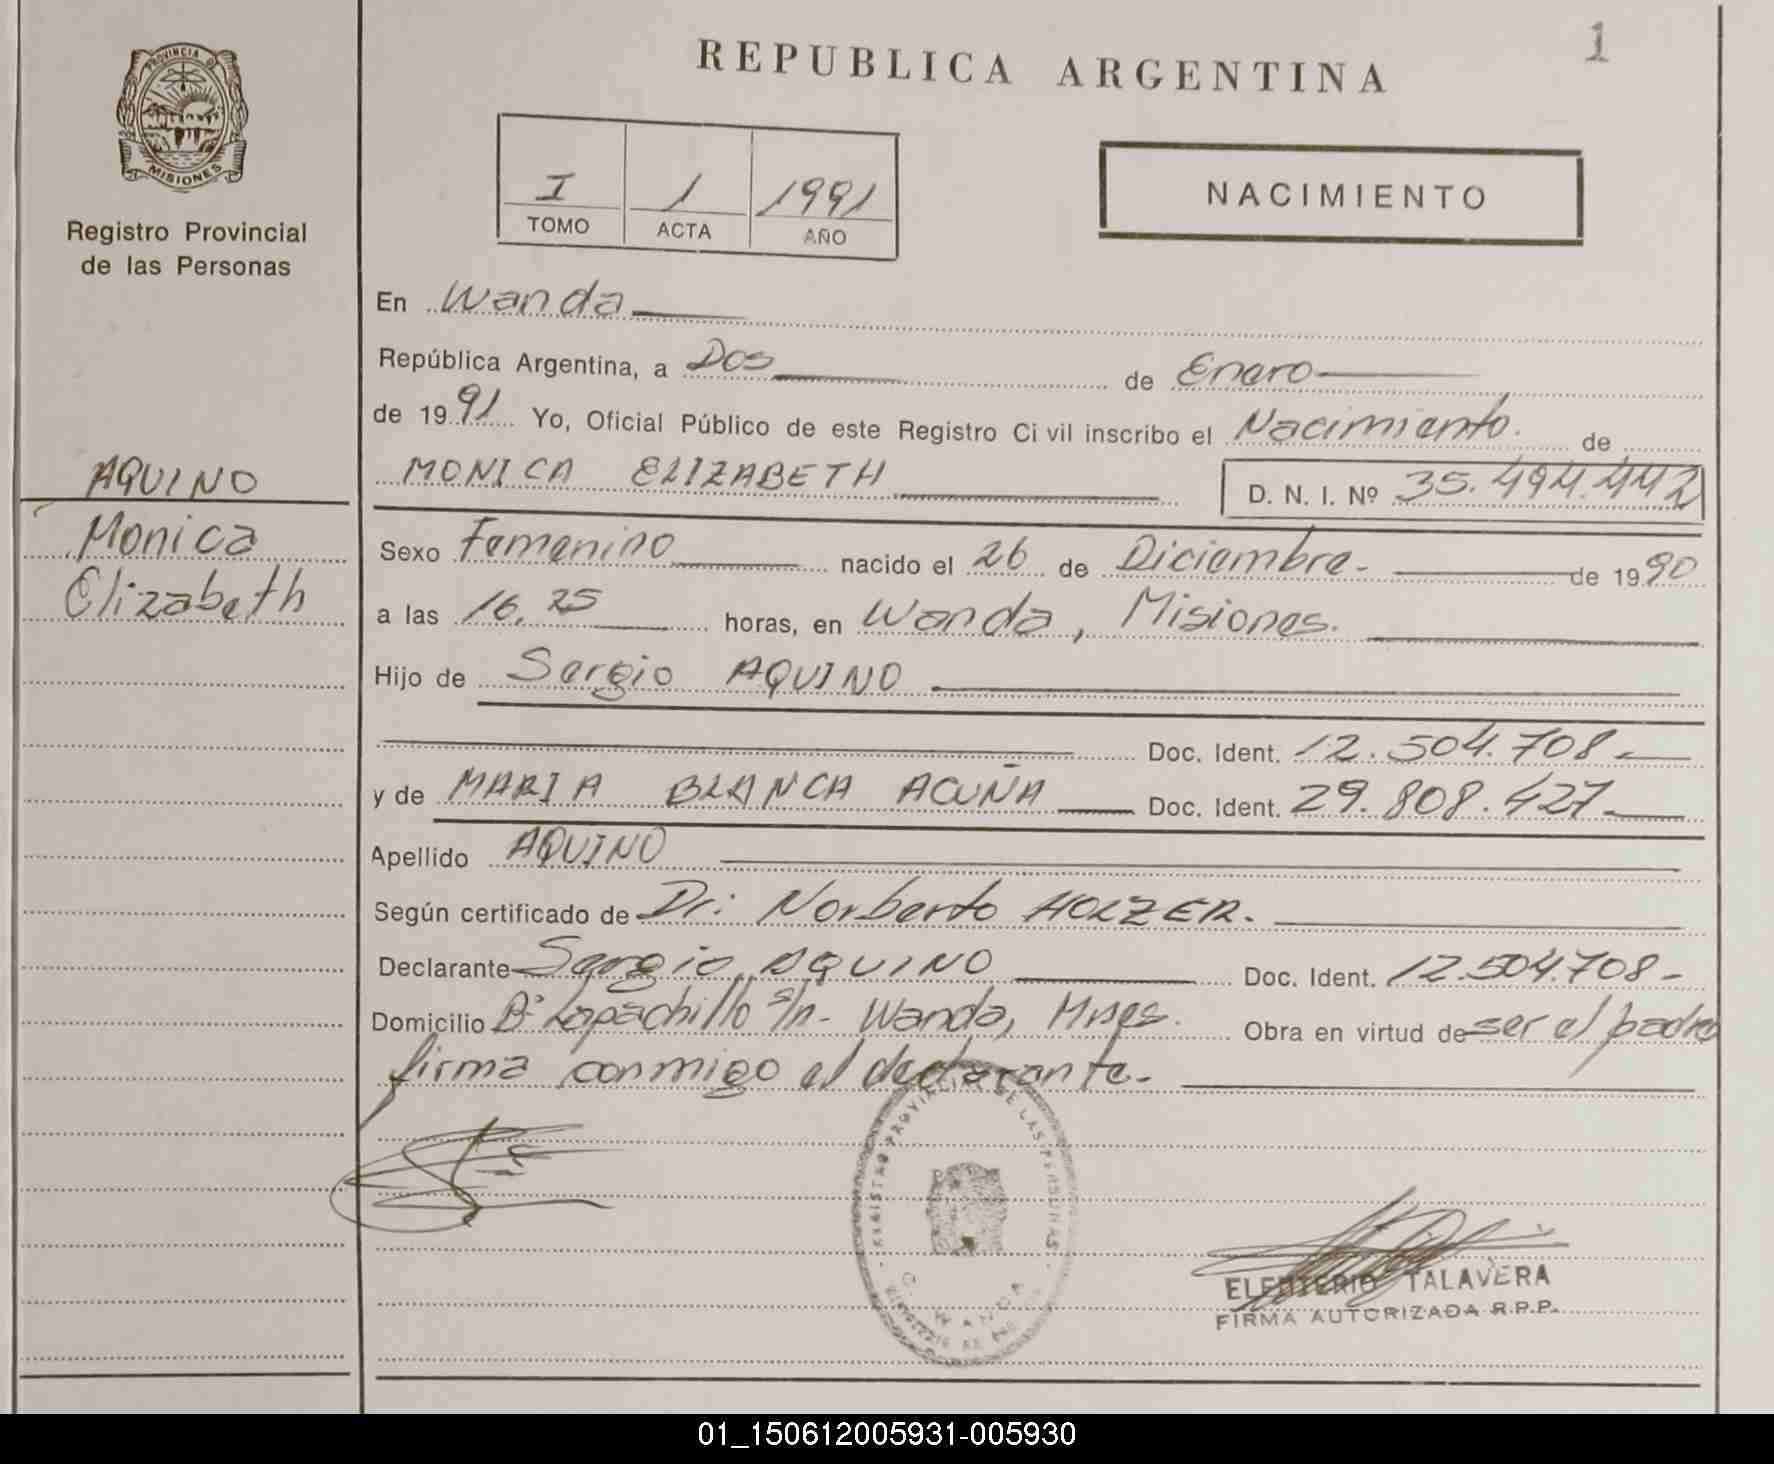 PROVINCIA DE
MISIONES
Registro Provincial
de las Personas
AQUINO
Monica
Elizabeth
1
REPUBLICA ARGENTINA
I 1 1991
TOMO ACTA AÑO
NACIMIENTO
En Wanda
República Argentina, a Dos de Enero
de 1991 Yo, Oficial Público de este Registro Civil inscribo el Nacimiento. de
MONICA ELIZABETH D. N. I. Nº 35.494.442
Sexo Femenino nacido el 26 de Diciembre - de 1990
a las 16.25 horas, en Wanda, Misiones.
Hijo de Sergio AQUINO
Doc. Ident. 12.504.708-
y de MARIA BLANCA ACUÑA Doc. Ident. 29.808.427-
Apellido AQUINO
Según certificado de Dr: Norberto HOLZER.
Declarante Sergio AQUINO Doc. Ident. 12.504.708-
Domicilio Bº Lapachillo s/n- Wanda, Mnes. Obra en virtud de ser el padre
firma conmigo el declarante.-
REGISTRO PROVINCIAL DE LAS PERSONAS
WANDA
ELEUTERIO TALAVERA
FIRMA AUTORIZADA R.P.P.
01_150612005931-005930